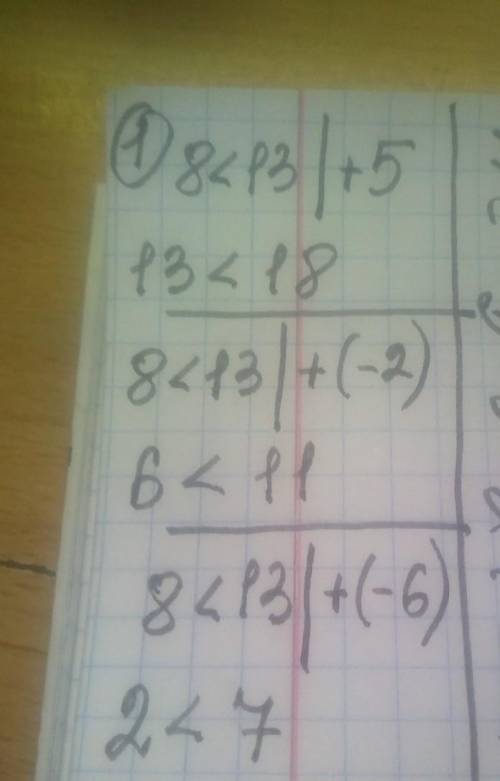 ① 8<13|+5
13<18
8<13|+(-2)
6<11
8<13|+(-6)
2<7